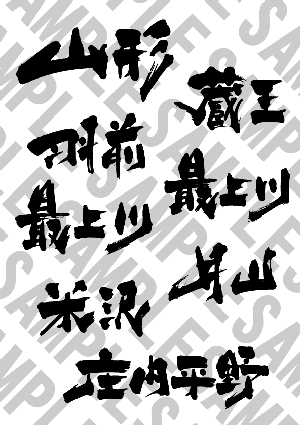 山形
蔵王
羽前
最上川
最上川
月山
米沢
庄内平野
SAMPLE